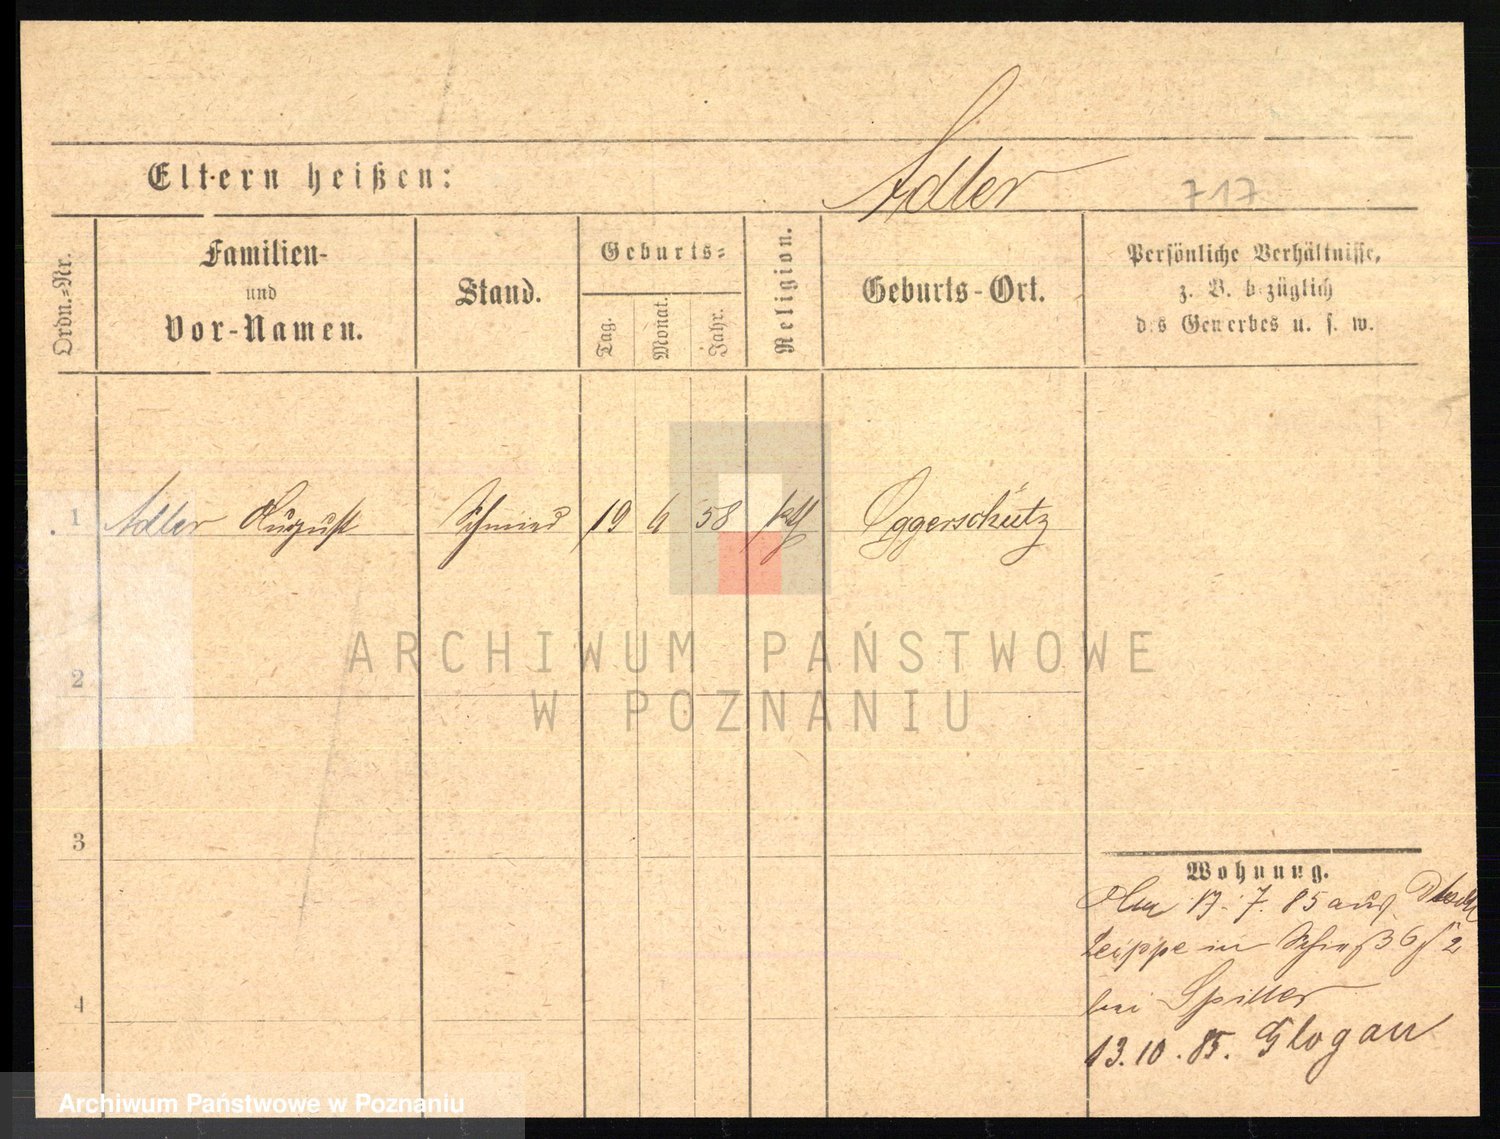 Adler
Eltern heißen:
717
Ordn.-Nr.
Familien-
und
Vor-Namen.
Stand.
Geburts-
Tag.
Monat.
Jahr.
Religion.
Geburts-Ort.
Persönliche Verhältnisse,
z. B. bezüglich
des Gewerbes u. s. w.
1 Adler August Schmied 19 6 58 kth Eggerschütz
2
3
4
Wohnung.
Am 17. 7. 85 aus
Leippe in Schieß 2
bei Spiller
13. 10. 85. Glogau
ARCHIWUM PAŃSTWOWE
W POZNANIU
Archiwum Państwowe w Poznaniu